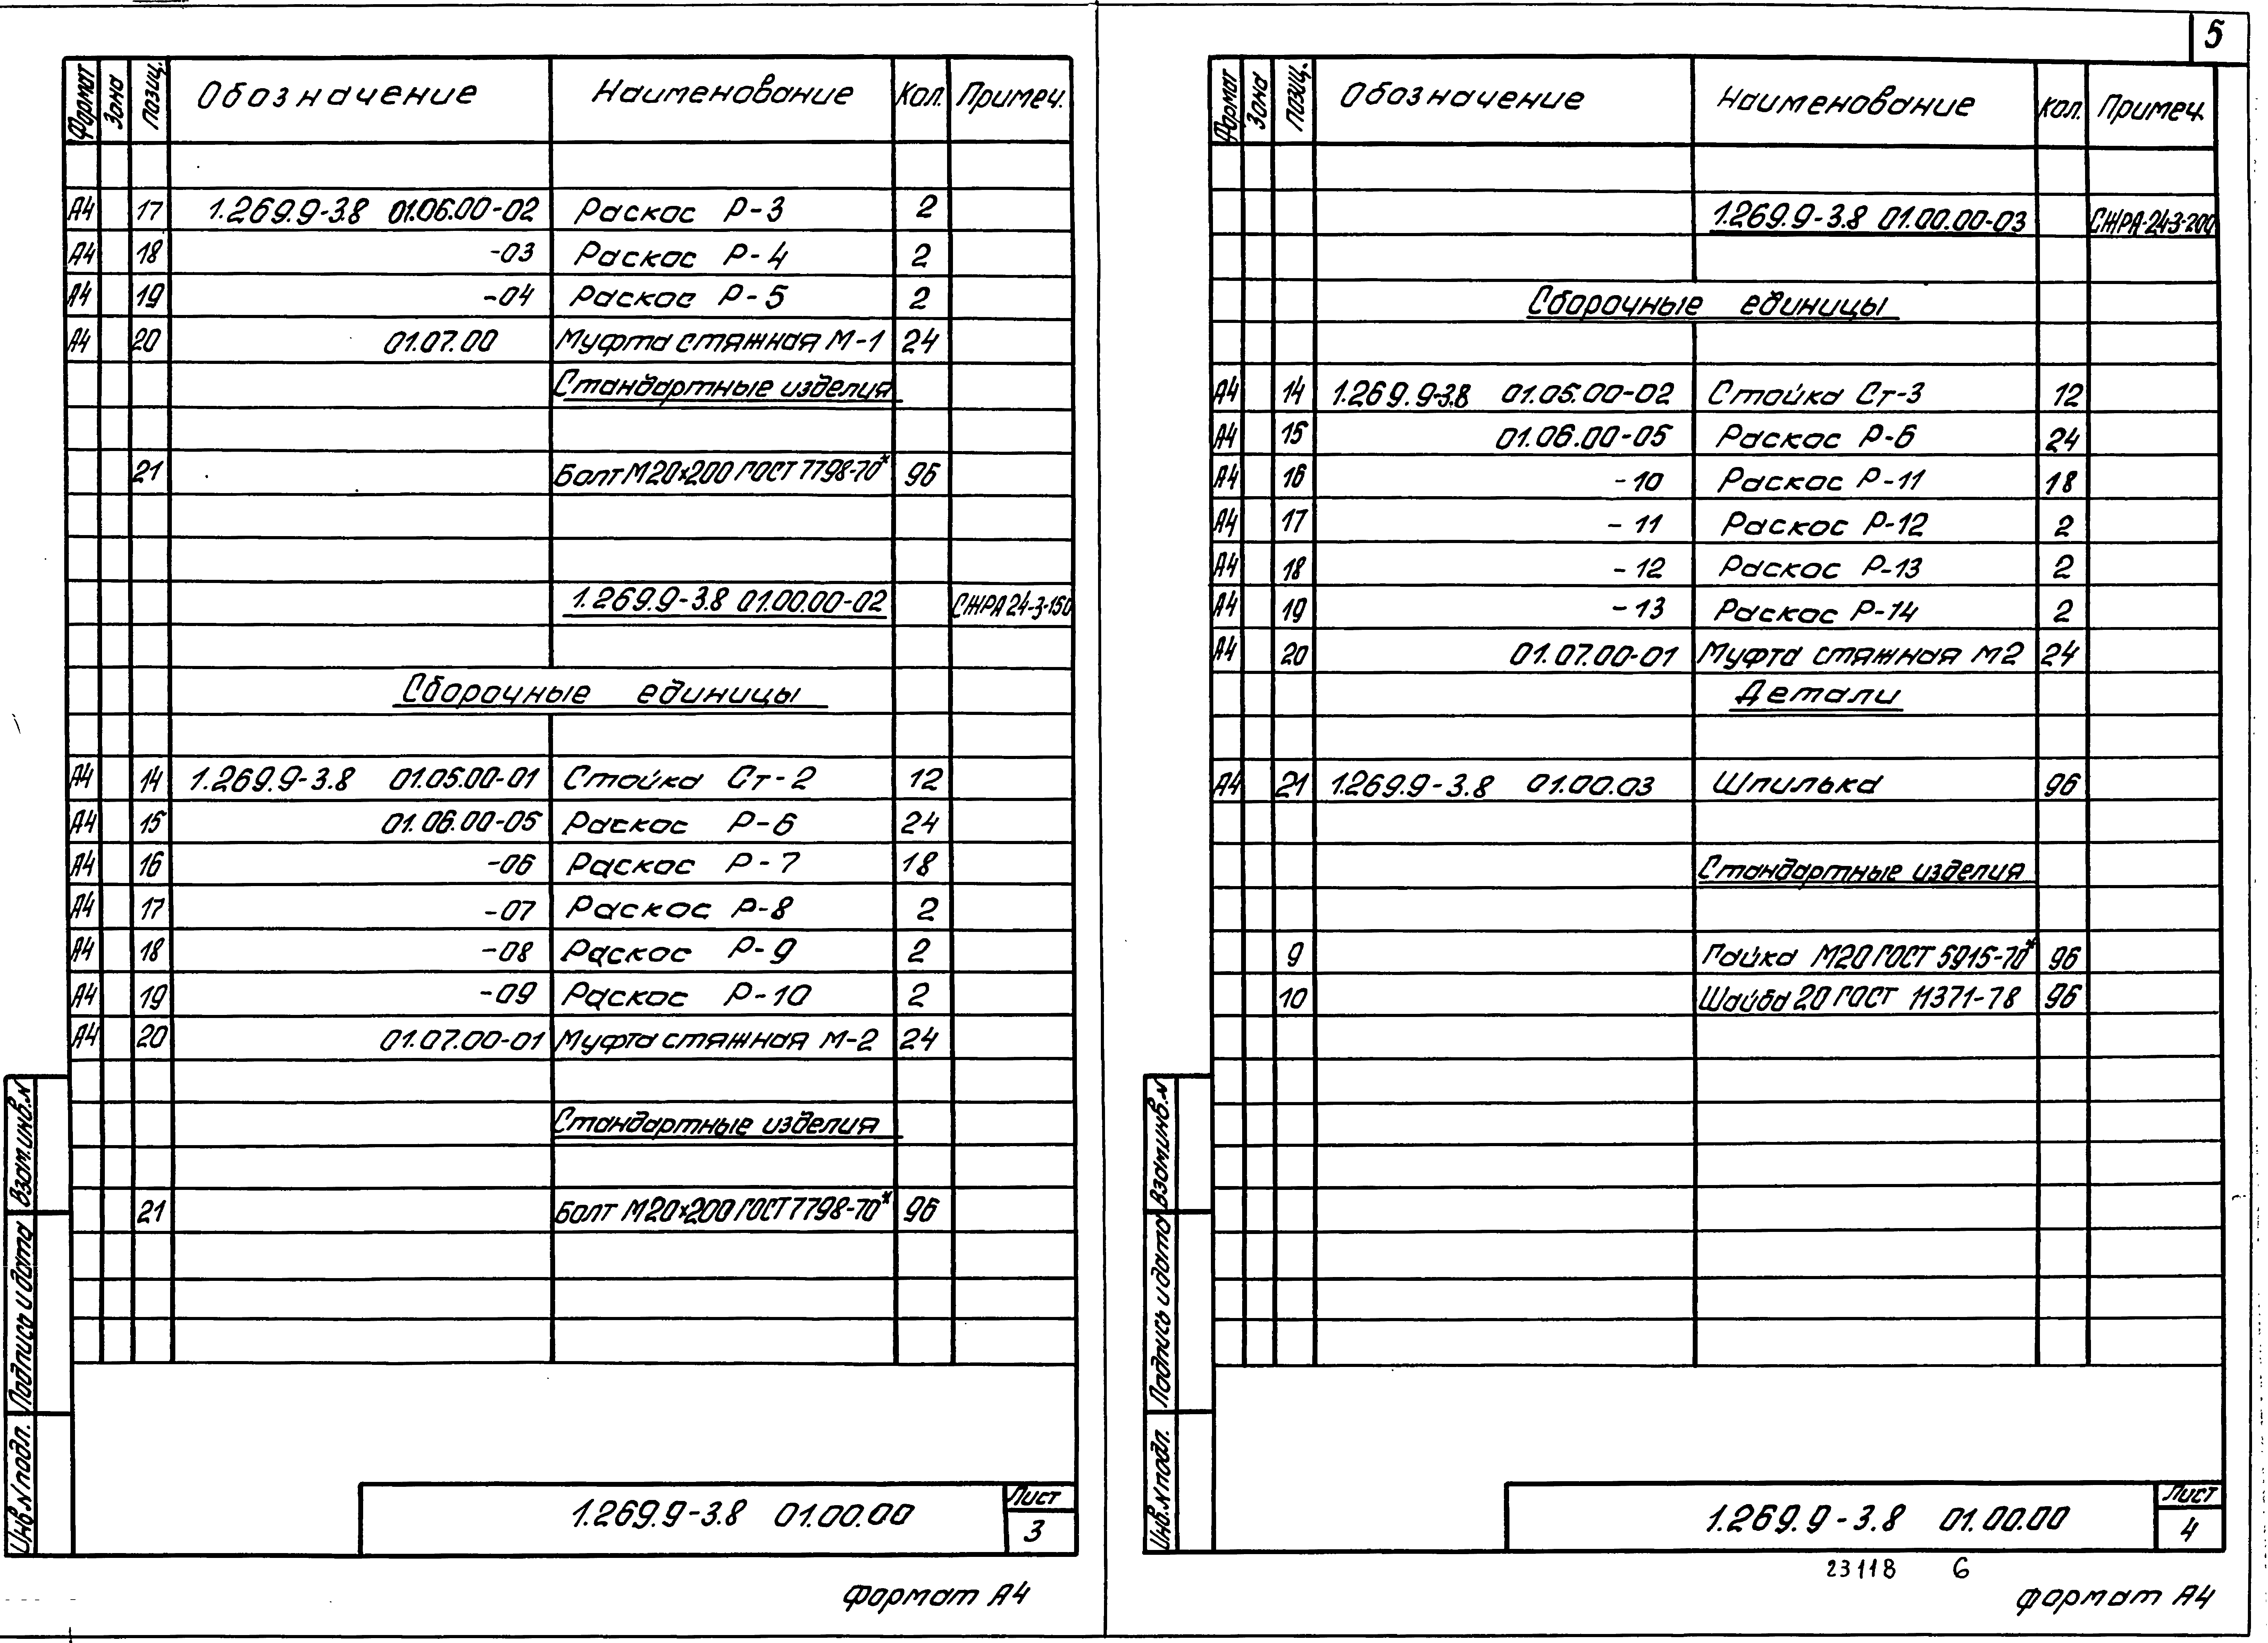 5
Формат Зона Позиц. Обозначение Наименование Кол. Примеч.
А4 17 1.269.9-3.8 01.06.00-02 Раскос Р-3 2
А4 18 -03 Раскос Р-4 2
А4 19 -04 Раскос Р-5 2
А4 20 01.07.00 Муфта стяжная М-1 24
Стандартные изделия
21 Болт М20×200 ГОСТ 7798-70* 96
1.269.9-3.8 01.00.00-02 СЖРА 24-3-150
Сборочные единицы
А4 14 1.269.9-3.8 01.05.00-01 Стойка Ст-2 12
А4 15 01.06.00-05 Раскос Р-6 24
А4 16 -06 Раскос Р-7 18
А4 17 -07 Раскос Р-8 2
А4 18 -08 Раскос Р-9 2
А4 19 -09 Раскос Р-10 2
А4 20 01.07.00-01 Муфта стяжная М-2 24
Стандартные изделия
21 Болт М20×200 ГОСТ 7798-70* 96
Взам.инв.N
Подпись и дата
Инв.N подл.
1.269.9-3.8 01.00.00
Лист
3
Формат А4
Формат Зона Позиц. Обозначение Наименование Кол. Примеч.
1.269.9-3.8 01.00.00-03 СЖРА-24-3-200
Сборочные единицы
А4 14 1.269.9-3.8 01.05.00-02 Стойка Ст-3 12
А4 15 01.06.00-05 Раскос Р-6 24
А4 16 -10 Раскос Р-11 18
А4 17 -11 Раскос Р-12 2
А4 18 -12 Раскос Р-13 2
А4 19 -13 Раскос Р-14 2
А4 20 01.07.00-01 Муфта стяжная М2 24
Детали
А4 21 1.269.9-3.8 01.00.03 Шпилька 96
Стандартные изделия
9 Гайка М20 ГОСТ 5915-70* 96
10 Шайба 20 ГОСТ 11371-78 96
Взам.инв.N
Подпись и дата
Инв.N подл.
1.269.9-3.8 01.00.00
Лист
4
23118 6
Формат А4